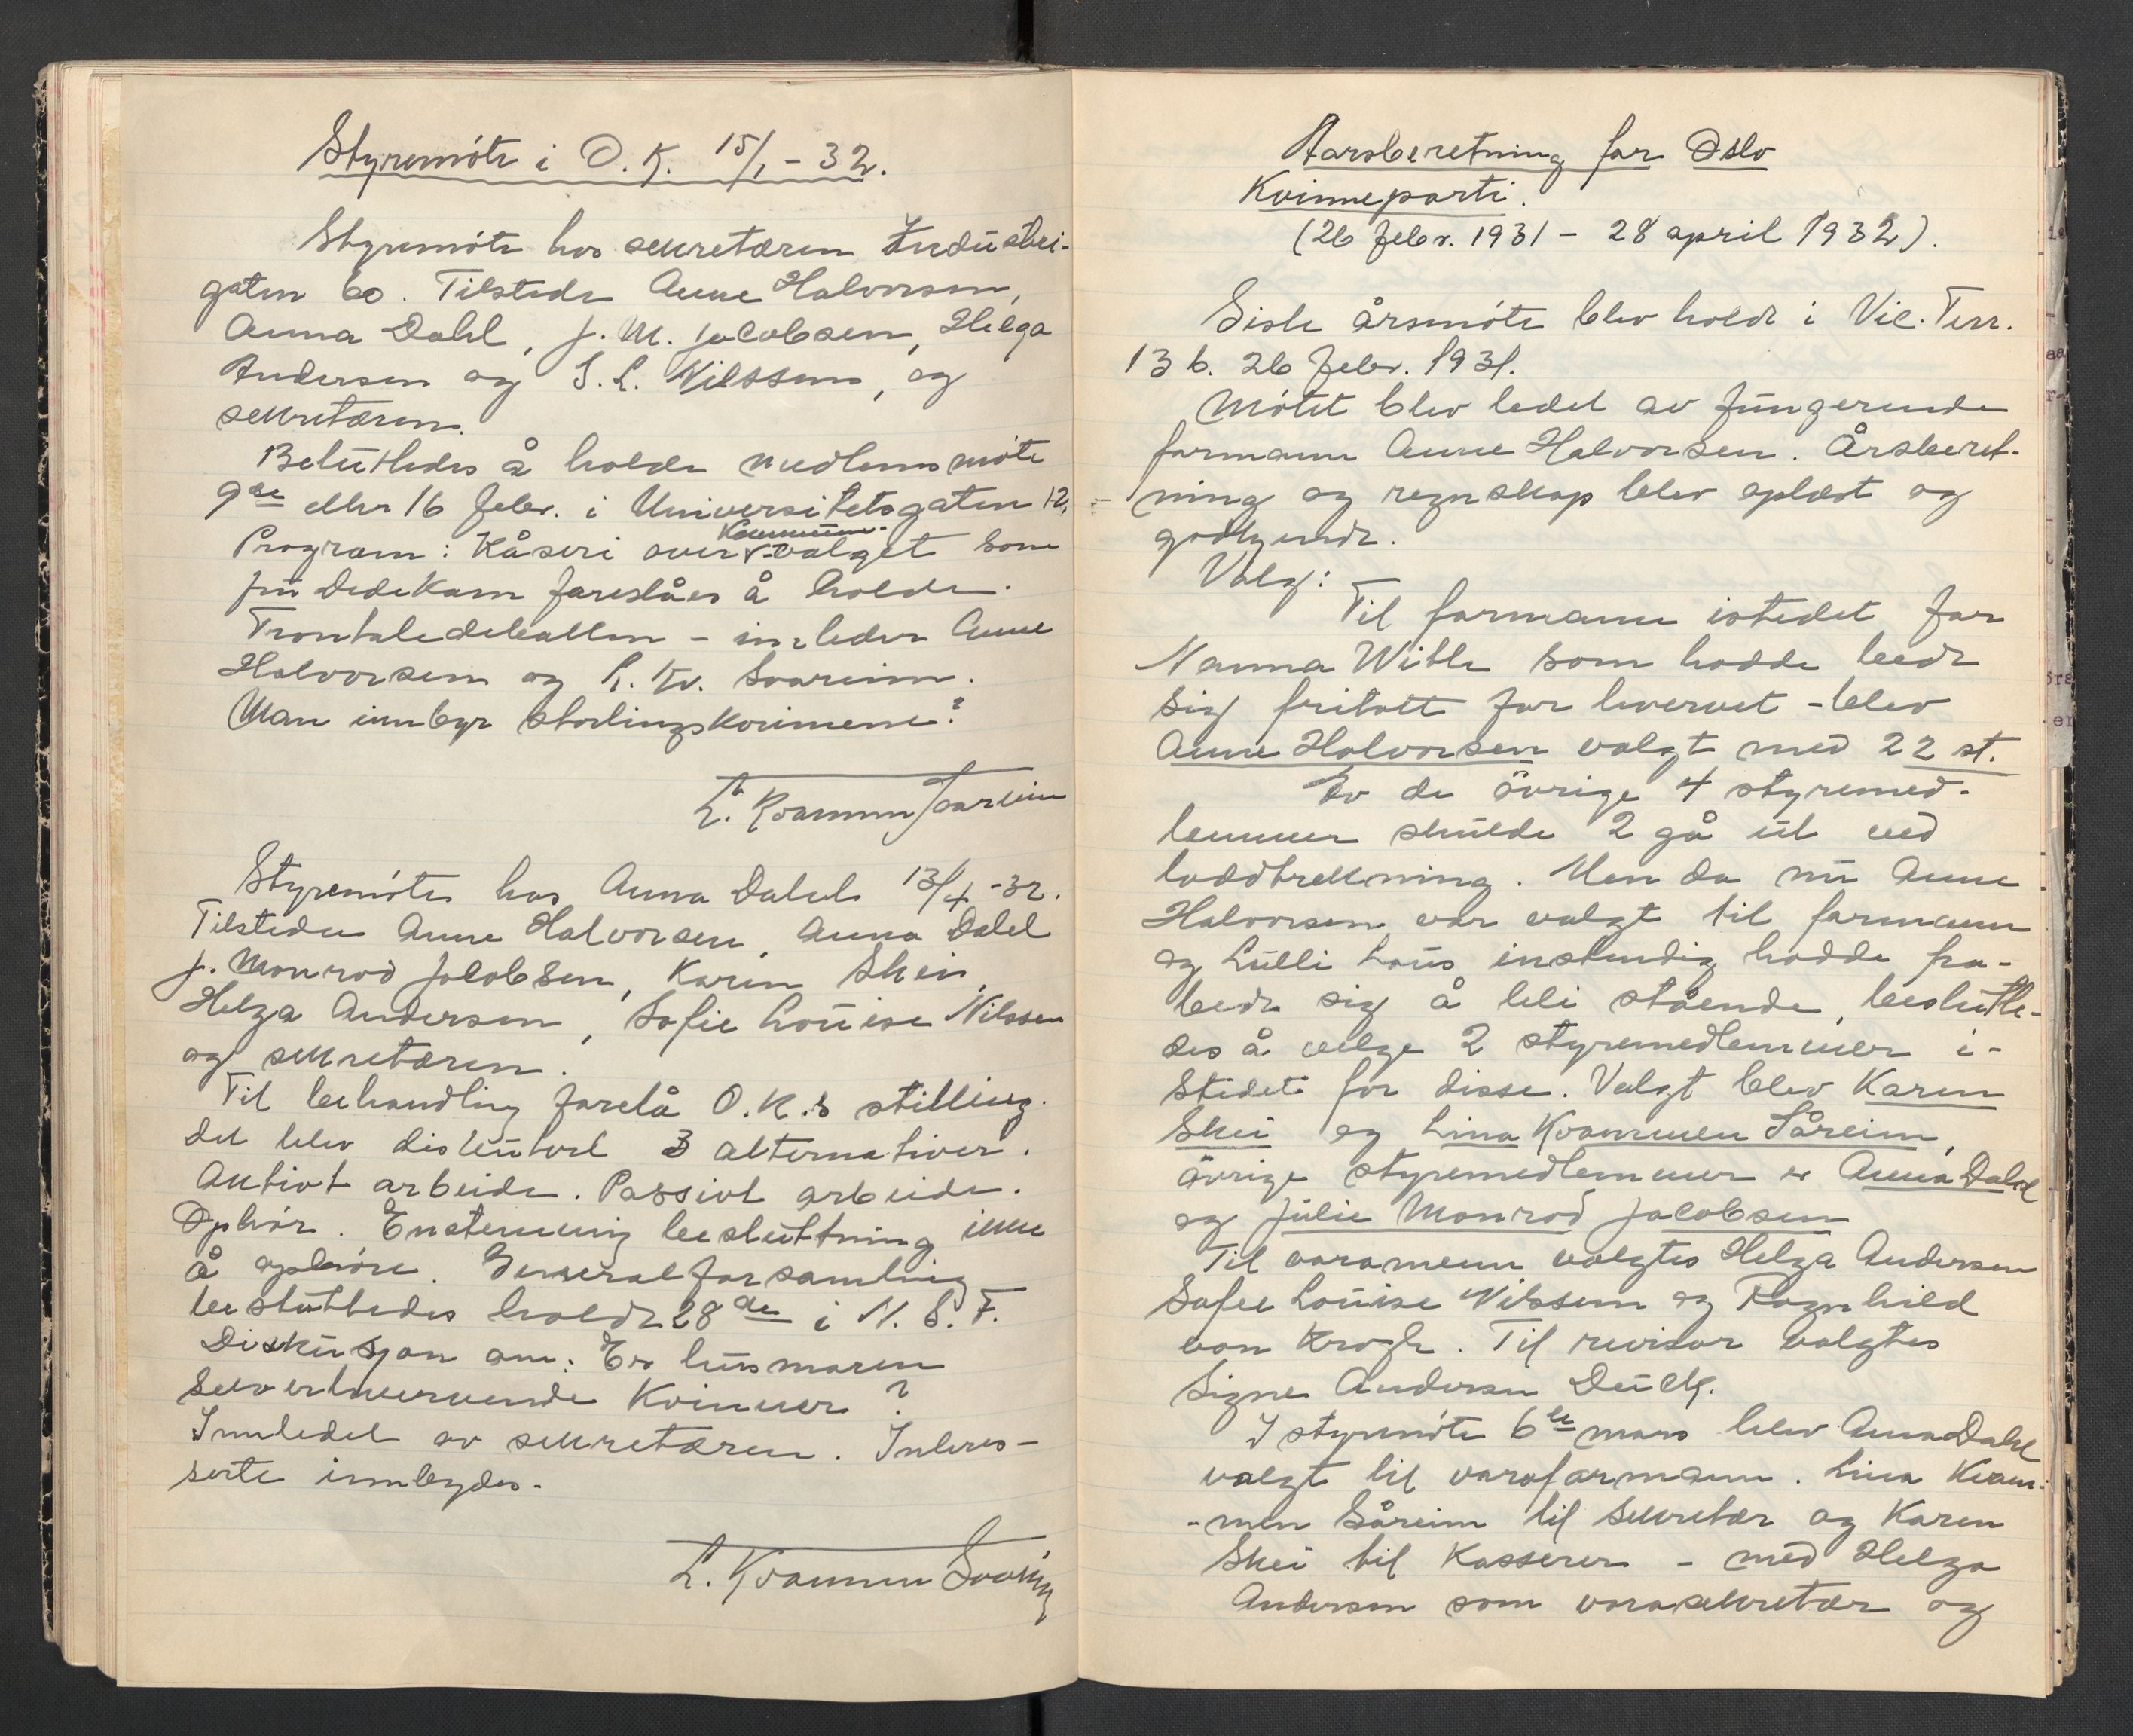 Styremöte i O.K. 15/1-32.
Styremöte hos sekretæren Industri-
gaten 60. Tilstede Anne Halvorsen,
Anna Dahl, J. M. Jacobsen, Helga
Andersen og S. L. Nilssen, og
sekretæren.
Beluttedes å holde medlemsmöte
9de eller 16 febr. i Universitetsgaten 12.
Kommune-
Program: Kåseri over valget som
fru Dedekam foreslåes å holde.
Trontaledebatten - innleder Anne
Halvorsen og L. Kv. Soareim.
Man innbyr stortingskvinnene?
L. Kvammen Soareim
Styremöte hos Anna Dahl 13/4-32.
Tilstede Anne Halvorsen, Anna Dahl
J. Monrad Jacobsen, Karin Skei,
Helga Andersen, Sofie Louise Nilssen
og sekretæren.
Til behandling forelå O.K.s stilling.
Det blev diskutert 3 alternativer.
Aktivt arbeide. Passivt arbeide.
Ophör. Enstemmig beslutning ikke
å ophöre. Generalforsamling
besluttedes holdt 28de i N.S.F.
Diskusjon om: Er husmoren
selverhvervende kvinner?
Innledet av sekretæren. Interes-
serte innbydes.
L. Kvammen Soareim
Aarsberetning for Oslo
Kvinneparti.
(26 febr. 1931 - 28 april 1932).
Siste årsmöte blev holdt i Vic. Terr.
13 b. 26 febr. 1931.
Mötet blev ledet av fungerende
formann Anne Halvorsen. Årsberet-
ning og regnskap blev oplæst og
godkjendt.
Valg:
Til formann istedet for
Nanna With som hadde bedt
sig fritatt for hvervet - blev
Anne Halvorsen valgt med 22 st.
Av de övrige 4 styremed-
lemmer skulde 2 gå ut ved
loddtrekning. Men da nu Anne
Halvorsen var valgt til formann
og Lulli Lous instendig hadde fra-
bedt sig å bli stående, beslutte-
des å velge 2 styremedlemmer i-
stedet for disse. Valgt blev Karen
Skei og Lina Kvammen Såreim,
övrige styremedlemmer er Anna Dahl
og Julie Monrad Jacobsen
Til varamenn valgtes Helga Andersen
Sofie Louise Nilssen og Ragnhild
von Krogh. Til revisor valgtes
Signe Andersen Dück.
I styremöte 6te mars blev Anna Dahl
valgt til varaformann. Lina Kvam-
-men Såreim til sekretær og Karen
Skei til kasserer - med Helga
Andersen som varasekretær og